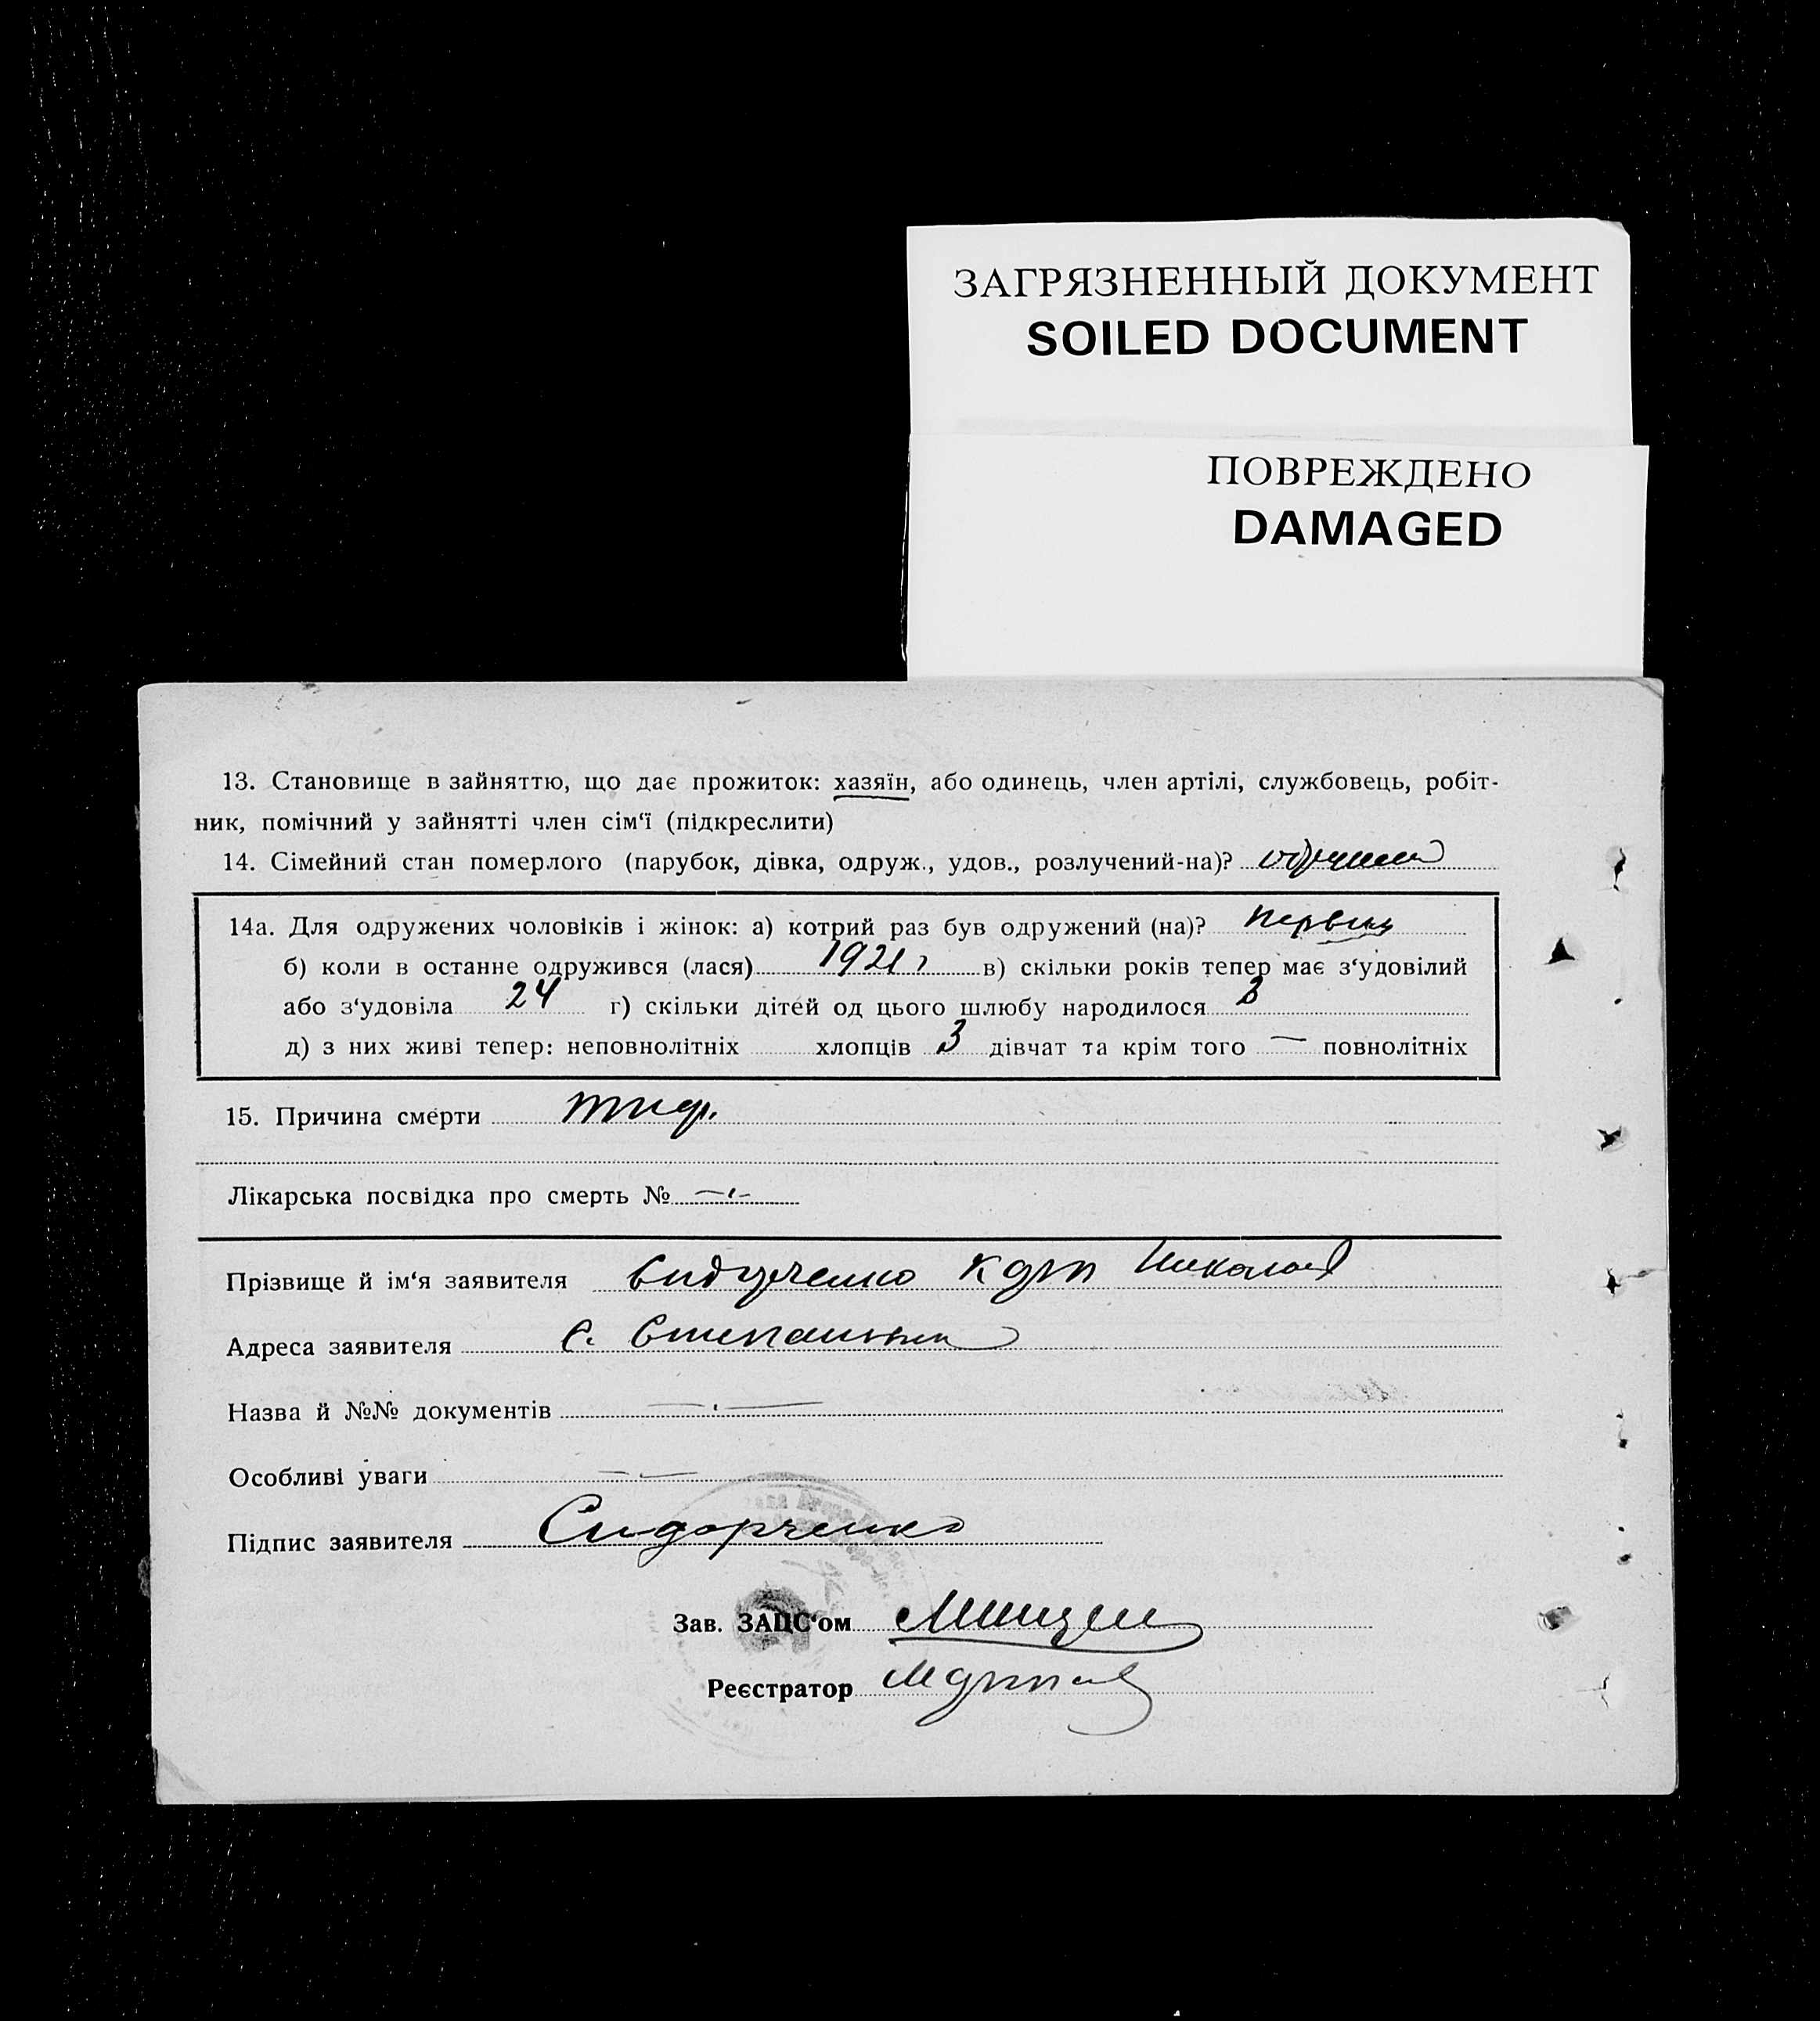 ЗАГРЯЗНЕННЫЙ ДОКУМЕНТ
SOILED DOCUMENT
ПОВРЕЖДЕНО
DAMAGED
13. Становище в зайняттю, що дає прожиток: хазяїн, або одинець, член артілі, службовець, робіт-
ник, помічний у зайнятті член сім‘ї (підкреслити)
14. Сімейний стан померлого (парубок, дівка, одруж., удов., розлучений-на)?
14а. Для одружених чоловіків і жінок: а) котрий раз був одружений (на)? первий
б) коли в останне одружився (лася) 1921 г в) скільки років тепер має з‘удовілий
або з‘удовіла 24 г) скільки дітей од цього шлюбу народилося 3
д) з них живі тепер: неповнолітніх хлопців 3 дівчат та крім того — повнолітніх
15. Причина смерти тиф.
Лікарська посвідка про смерть № —"—
Прізвище й ім‘я заявителя Николай
Адреса заявителя с.
Назва й №№ документів —"—
Особливі уваги — —
Підпис заявителя Сидорченко
Зав. ЗАЦС‘ом
Реєстратор